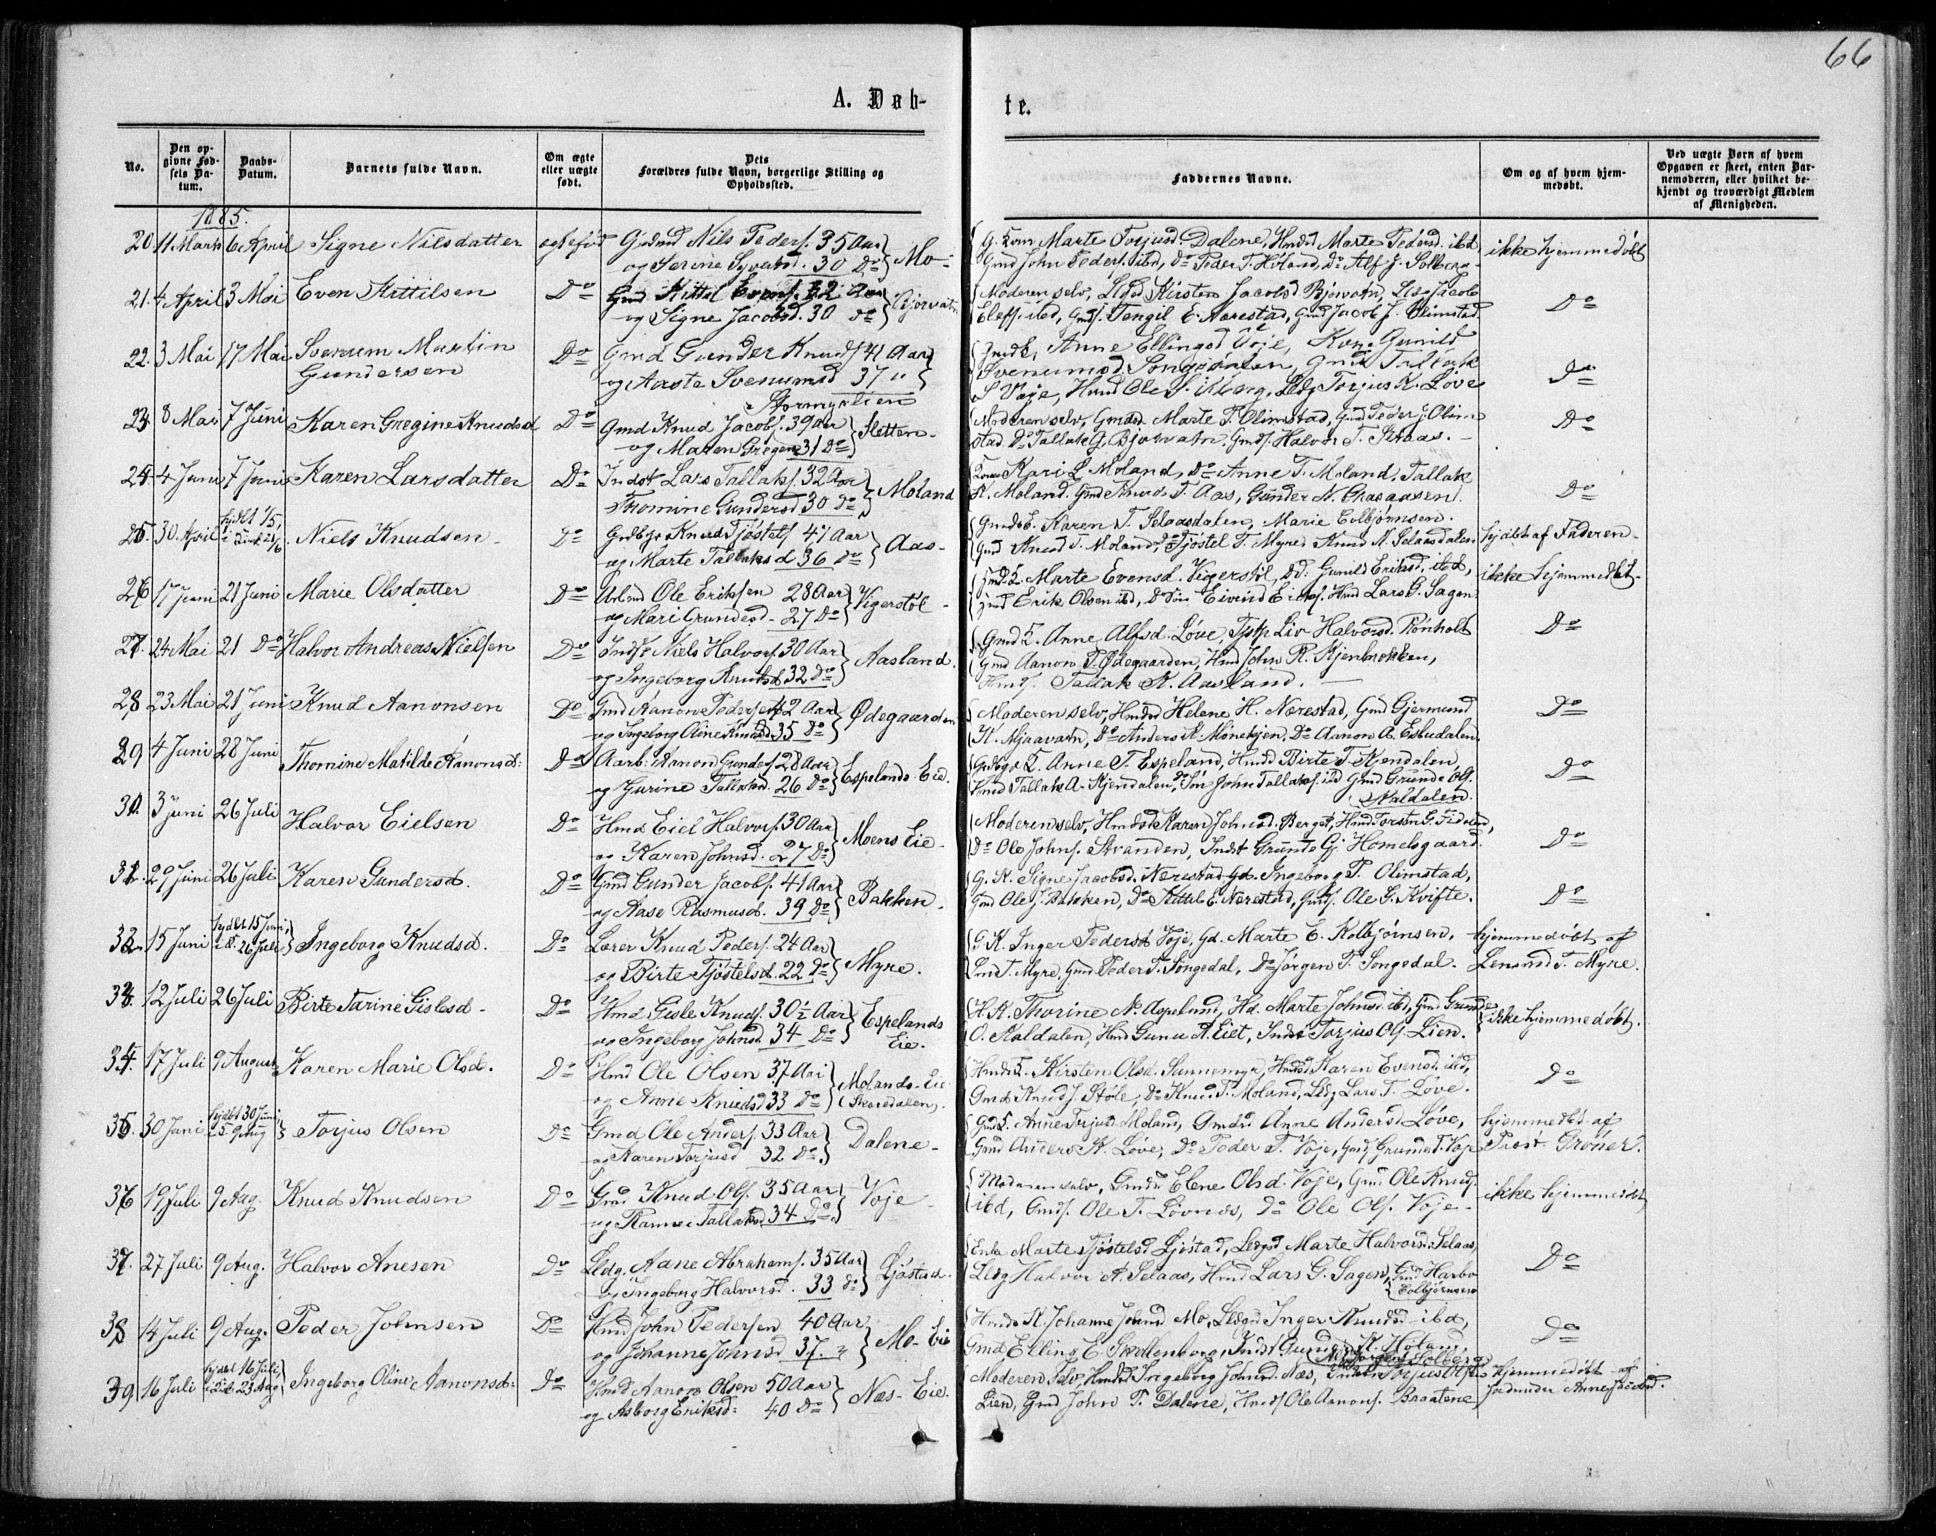 66
A. Døb-
te.
No.
Den op-
givne Fød-
sels Da-
tum.
Daabs-
Datum.
Barnets fulde Navn.
Om ægte
eller uægte
født.
Dets
Forældres fulde Navn, borgerlige Stilling og
Opholdssted.
Faddernes Navne.
Om og af hvem hjem-
medøbt.
Ved uægte Børn af hvem
Opgaven er skeet, enten Bar-
nemoderen, eller hvilket be-
kjendt og troværdigt Medlem
af Menigheden.
1885.
20. 11 Marts 6 April Signe Nilsdatter Gmd Nils Peders. 35 Aar Mo- G. Kone Marte Torjusd. Dalene, Hmds Marte Pedersd. ibd ikke hjemmedøbt
og Serine Syversd. 30 Do Gmd John Peders. ibd, Do Peder T. Høland, Do Alf J. Solberg
21. 4 April 3 Mai Even Kittilsen Do Gmd Kittel Evens. 32 Aar Bjorvatn Moderen selv, Kirsten Jacobsd Bjorvatn, Jacob Do
og Signe Jacobsd. 30 Do Elefs. ibd, Gmds. Tengil E. Nærestad, Gmd Jacob J. Olimstad
22. 3 Mai 17 Mai Svenum Martin Do Gmd Gunder Knuds. 41 Aar Anne Ellingsd Voje, Gunild
Gundersen og Aaste Svenumsd 37 " Svenumsd Songedalen, Gmd Tallak Do
S. Voje, Hmd Ole T. Torjus K. Løve
23. 8 Mai 7 Juni Karen Gregine Knudsd Do Gmd Knud Jacobs. 39 Aar Sletten- Moderen selv, Marte T. Olimstad, Gmd Peder J. Olim- Do
og Maren Gregersd 31 Do stad, Do Tallak G. Bjorvatn, Gmds. Halvor T. Selaas.-
24. 4 Juni 7 Juni Karen Larsdatter Do Indst Lars Tallaks. 32 Aar Moland Kari L. Moland, Do Anne T. Moland, Tallak
Thomine Gundersd 30 Do K. Moland, Gmd Knud T. Aas, Gunder N. Graaaasen. Do
25. 30 April hjdbt 1/5, Niels Knudsen- Do Knud Tjøstels. 47 Aar Aas- Karen T. Selaasdalen, Marie Eilbjørnsen. hjdbt af Faderen-
og Marte Tallaksd 36 Do Gmd Knud T. Moland, Do Tjøstel T. Myre, Knud N. Selaasdalen
26 17 Juni 21 Juni Marie Olsdatter Do Ole Eriksen 28 Aar Vigerstøl- Marte Evensd. Vigerstøl, Gunild Eriksd. ibd, ikke hjemmedøbt-
og Mari Grundesd- 27 Do Gmd Erik Olsen ibd, Eivind Hmd Lars G. Sagen
27. 24 Mai 21 Do Halvor Andreas Nielsen Do Niels Halvors. 30 Aar Aasland. Anne Alfsd. Løve, Liv Halvorsd. Rønholt Do
og Ingeborg Knudsd 32 Do Gmd Aanon T. Ødegaarden, Hmd John R. Kjenbækken,
Tallak K. Aasland.-
28. 23 Mai 21 Juni Knud Aanonsen Do Gmd Aanon Pedersen 42 Aar Ødegaarden Moderen selv, Helene H. Nærestad, Gmd Gjermund Do
og Ingeborg Oline Knudsd 35 Do K. Mjaavatn, Do Anders Do Aanon A. Esbudalen
29 4 Juni 28 Juni Thomine Matilde Aanonsd: Do Aarb. Aanon Gunders. 28 Aar Espelands Eie. Anne T. Espeland, Birte T. Kjendalen, Do
og Gurine Tallaksd. 26 Do Hmd Tallak A. Kjendalen, John Tallaks. ibd Gmd Grunde Og.
Naldalen.
30. 3 Juni 26 Juli Halvor Eielsen Do Hmd Eiel Halvors. 30 Aar Moens Eie- Moderen selv, Karen Johnsd. Berget, Hmd Torsten G. Do
og Karen Johnsd. 27 Do Do Ole Johns. Stranden, Indst Grunde Gj. Homelsgaard.
31. 29 Juni 26 Juli Karen Gundersd. Do Gmd Gunder Jacobs. 41 Aar Bakken- G. K. Signe Jacobsd. Nærestad, Gd. Ingeborg P. Olimstad, Do
og Aase Rasmusd. 39 Do Gmd Ole J. Bakken, Do Kittel E. Nærestad, Gmds. Ole G. Kvifte.
32. 15 Juni hjdbt 15 Juni, 26 Juli Ingeborg Knudsd. Do Lærer Knud Peders. 24 Aar Myre. G. K. Inger Pedersd Voje, Gd. Marte E. Kolbjønsen, hjemmedøbt af
og Birte Tjøstelsd. 22 Do T. Myre, Gmd Peder T. Songedal, Do Jørgen T. Songedal. Lensmd T. Myre.
33. 12 Juli 26 Juli Birte Tarine Gislesd- Do Hmd Gisle Knuds. 30½ Aar Espelands H. K. Thorine N. Aspelund, Hd. Marte Johnsd ibd, Gmd Grunde ikke hjemmedøbt.
og Ingeborg Johnsd. 34 Do Eie. O. Naldalen, Hmd Gunu A. Eiet, Indst Torjus Og. Lien.
34. 17 Juli 9 August Karen Marie Olsd. Do Hmd Ole Olsen 37 Aar Molands-Eie Kirsten Olsd. Sunnemyr, Karen Evensd. ibd, Do
og Anne Knudsd 33 Do (Skoredalen). Gmd Knud J. Støle, Do Knud T. Moland, Lars T. Løve.
35. 30 Juni hjdbt 30 Juni 9 Aug Torjus Olsen Do Gmd Ole Anders. 33 Aar Dalene- Anne Torjusd. Moland, Anne Andersd. Løve, hjemmedøbt af
og Karen Torjusd 32 Do. Gmd Anders K. Løve, Do Peder T. Voje, Grunde T. Voje Prost Grøner.
36 19 Juli 9 Aug. Knud Knudsen Do Gmd Knud Ols. 35 Aar Voje- Moderen selv, Elene Olsd. Voje, Gmd Ole Knuds. ikke hjemmedøbt
og Tallaksd 34 Do. ibd, Gmds. Ole T. Løvnes, Do Ole Ols. Voje-
37. 27 Juli 9 Aug. Halvor Anesen Do Aane Abrahams. 35 Aar Ljøstad- Enke Marte Tjøstelsd Ljøstad, Marte Halvorsd. Selaas, Do
og Ingeborg Halvorsd. 33 Do Halvor A. Selaas, Hmd Lars G. Sagen, Gmd Harbo
Eolbjørnsen
38 14 Juli 9 Aug. Peder Johnsen Do Hmd John Pedersen 40 Aar Mo- Eie K. Johanne Johnsd Mo, Inger Knudsd ibd, Do
og Johanne Johnsd 37. " Gmd Elling E. Skollenborg, Indst Gunder K. Moland,
39 16 Juli hjdbt 16 Juli, 23 Aug Ingeborg Oline Aanonsd: Do Hmd Aanon Olsen 50 Aar Næs- Eie. Moderen selv, Ingeborg Johnsd. Næs, Torjus hjemmedøbt af
og Asborg Eriksd: 40 Do Lien, Gmd John T. Dalene, Ole Aanons. Braatene, Jordmoder Anne